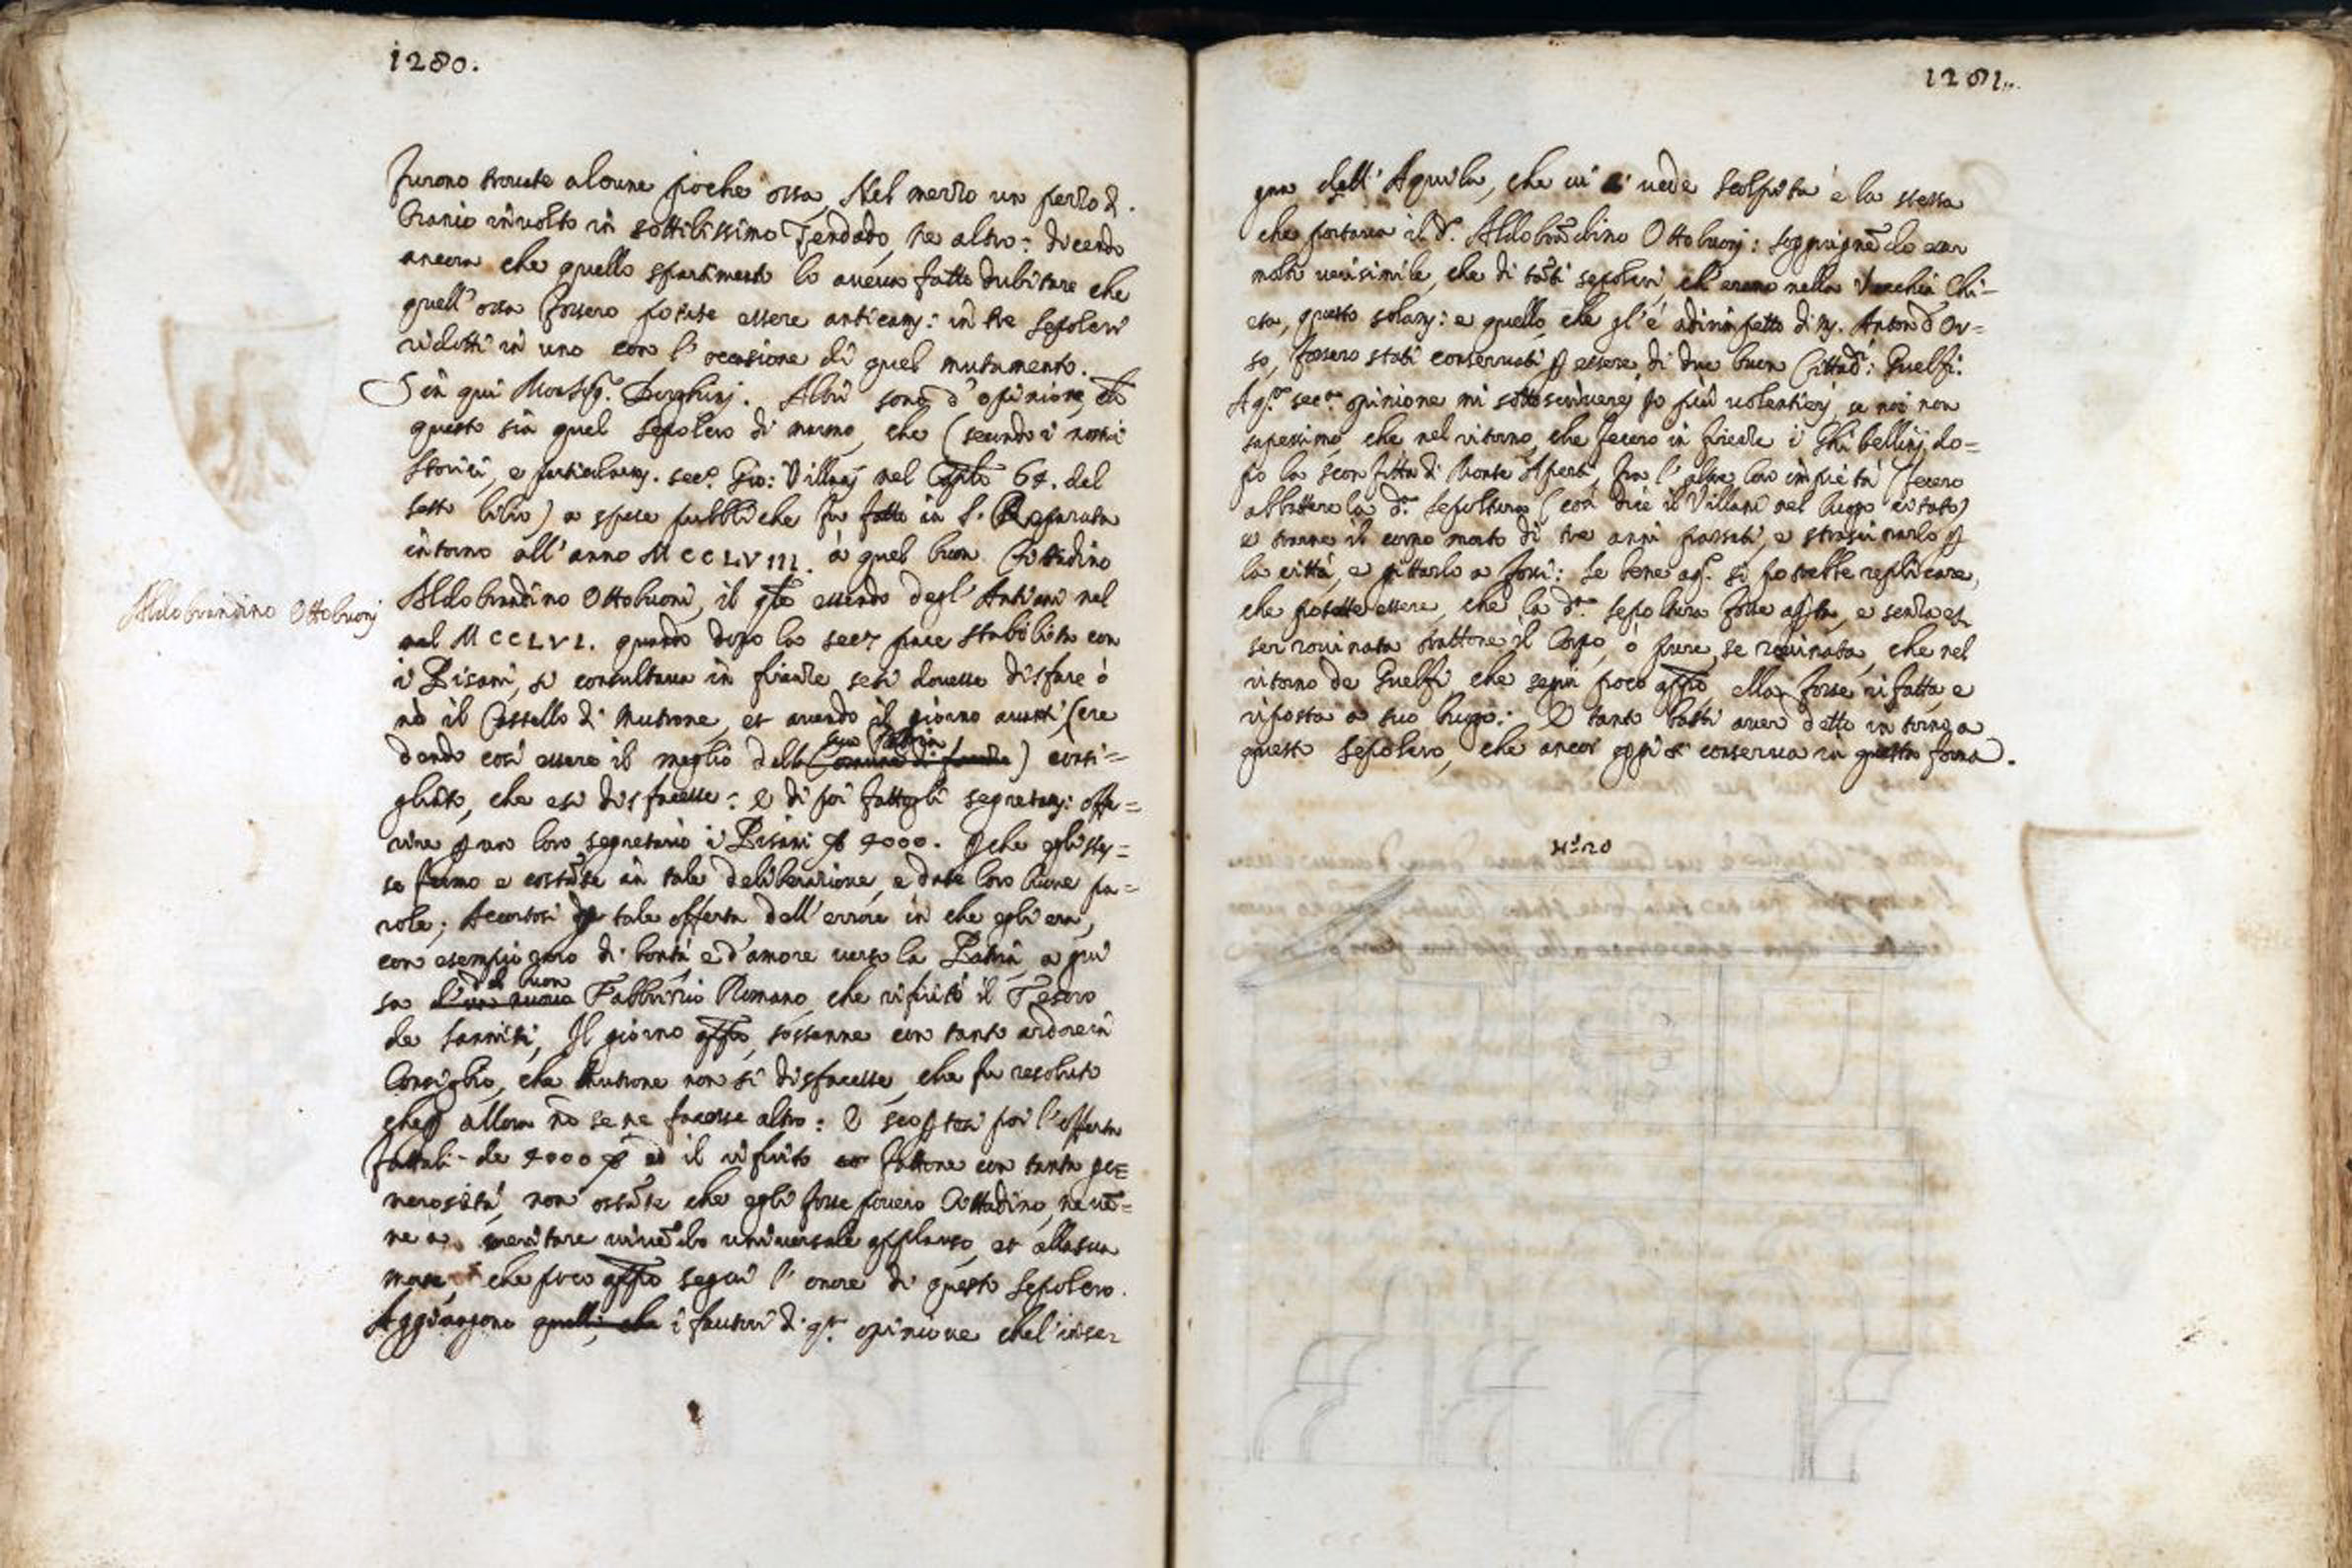 1280.
furono trovate alcune poche ossa, Nel mezzo un pezzo di
Cranio involto in sottilissimo Zendado, ne altro: dicendo
ancora che quello spartimento lo aveva fatto dubitare che
quell'ossa fossero potute essere anticam: in tre sepolcri
ridotti in uno con l'occasione di quel mutamento.
Sin qui Monsig.r Borghini. Altri sono d'opinione, che
questo sia quel sepolcro di marmo, che (secondo i nostri
storici, e particolarm. sec.o Gio: Villani nel Cap.lo 64. del
sesto libro) a spese pubbliche fu fatto in S. Reparata
intorno all'anno MCCLVIII. à quel buon Cittadino
Aldobrandino Ottobuoni
Aldobrandino Ottobuoni, il q̃le essendo degl'Antiani nel
nel MCCLVI. quando dopo la sec.a pace stabilita con
i Pisani, si consultava in firenze se si dovesse disfare ò
nò il Castello di Mutrone, et avendo il giorno avanti (cre
sua Patria
dendo così essere il meglio della Comune di firenze) consi=
gliato, che esi disfacesse: e di poi fattogli segretam: offe=
rire p un loro segretario i Pisani 4000. pche egli stes=
se fermo e costãte in tale deliberazione, e date loro buone pa=
role; Accortosi p tale offerta dell'errore in che egli era,
con esempio raro di bontà e d'amore verso la Patria, a gui
del buon
sa Fabbrizio Romano, che rifiutò il Tesoro
de Sanniti, Il giorno app̃o, sostenne con tanto ardore in
Consiglio, che Mutrone non si disfacesse, che fu resoluto
che p allora nõ se ne facesse altro: E scoptasi poi l'offerta
fattali de 4000 ed il rifiuto fattone con tanta ge=
nerosità, non ostãte che egli fosse povero Cittadino, ne vẽ=
ne a meritare vivẽdo universale applauso, et alla sua
morte, che poco app̃o seguì l'onore di questo sepolcro.
Aggiungono quelli, che i fautori di q.ta opinione che l'inse-
1281.
gna dell'Aquila, che vi si vede scolpita è la stessa
che portava il d.o Aldobrãdino Ottobuoni: soggiugnẽdo esser
molto verisimile, che di tãti sepolcri, ch'erano nella Vecchia Chi=
esa, questo solam: e quello, che gl'è adirimpetto di M. Anton d'Or=
so, fossero stati conservati p essere, di due buon Cittad.i Guelfi.
A q.ta sec.a opinione mi sottoscriverei Io più volentieri, se noi non
sapessimo, che nel ritorno, che fecero in firenze i Ghibellini do=
po la sconfitta di Monte Aperti, fra l'altre loro impietà fecero
abbattere la d.a sepoltura (così dice il Villani nel luogo citato)
e trarne il corpo morto di tre anni passati, e strascinarlo p
la città, e gittarlo a fossi: Se bene a q.o si potrebbe replicare,
che potette essere, che la d.a sepoltura fosse apta, e senza es
ser rovinata trattone il Corpo, ò pure, se rovinata, che nel
ritorno de Guelfi, che seguì poco app̃o, ella fosse rifatta, e
riposta a suo luogo: E tanto basti aver detto intorno a
questo sepolcro, che ancor oggi si conserva in questa forma.
N.o 20